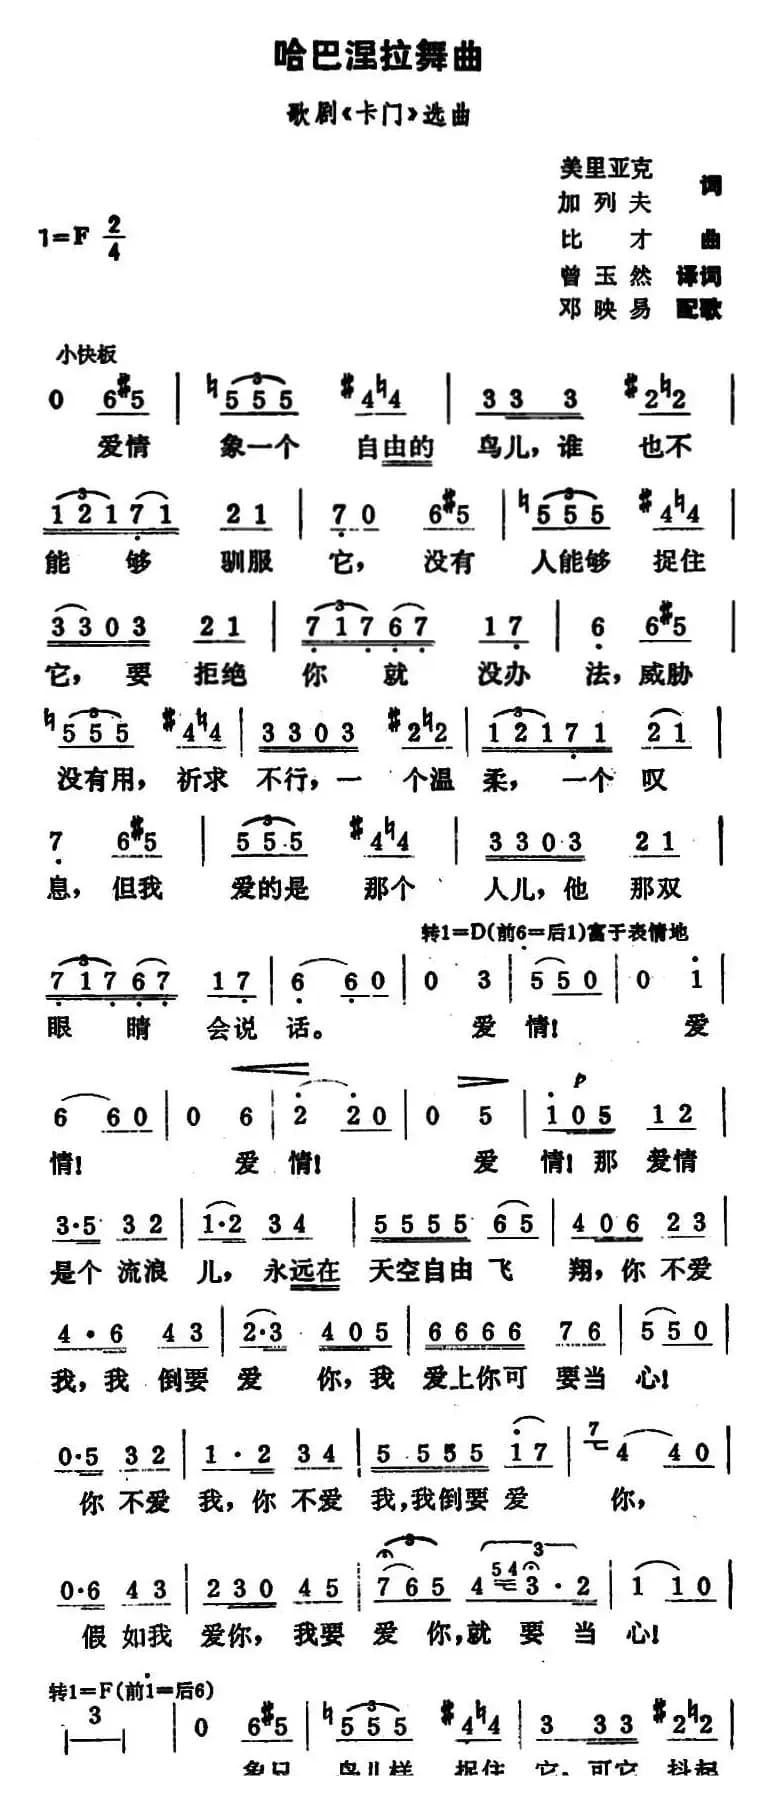 哈巴涅拉舞曲
歌剧《卡门》选曲
美里亚克
加列夫 词
1=F 2/4
比才 曲
曾玉然 译词
邓映易 配歌
小快板
0 6#5 | ♮555 #4♮4 | 33 3 #2♮2 |
爱情 象一个 自由的 鸟儿，谁 也不
12171 21 | 70 6#5 | ♮555 #4♮4 |
能够 驯服 它，没有 人能够 捉住
3303 21 | 71767 17 | 6 6#5 |
它，要 拒绝 你就 没办 法，威胁
♮555 #4♮4 | 3303 #2♮2 | 12171 21 |
没有用，祈求 不行，一 个温 柔，一个 叹
7 6#5 | 555 #4♮4 | 3303 21 |
息，但我 爱的是 那个 人儿，他 那双
转1=D(前6=后1)富于表情地
71767 17 | 6 60 | 0 3 | 550 | 0 1 |
眼睛 会说 话。 爱 情! 爱
p
6 60 | 0 6 | 2 20 | 0 5 | 105 12 |
情! 爱 情! 爱 情!那 爱情
3·5 32 | 1·2 34 | 5555 65 | 406 23 |
是个 流浪 儿，永远在 天空自由 飞 翔，你 不爱
4·6 43 | 2·3 405 | 6666 76 | 550 |
我，我 倒要 爱 你，我 爱上你可 要当 心!
0·5 32 | 1·2 34 | 5 555 5 17 | 7 4 40 |
你 不爱 我，你 不爱 我，我倒要 爱 你，
0·6 43 | 230 45 | 765 4 54 3·2 | 1 10 |
假 如我 爱你，我要 爱 你，就 要 当 心!
转1=F(前1=后6)
3 | 0 6#5 | ♮555 #4♮4 | 3 33 #2♮2 |
鸟儿样 捉住 它，可它 抖起